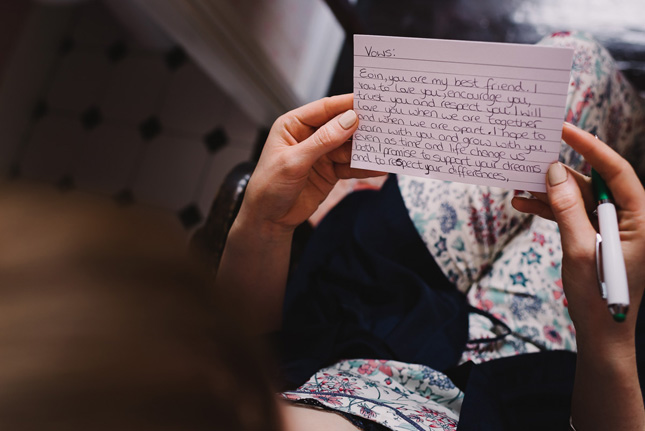 Vows:
Eoin, you are my best friend. I
vow to love you, encourage you,
trust you and respect you. I will
love you when we are together
and when we are apart. I hope to
learn with you and grow with you,
even as time and life change us
both. I promise to support your dreams
and to respect your differences,